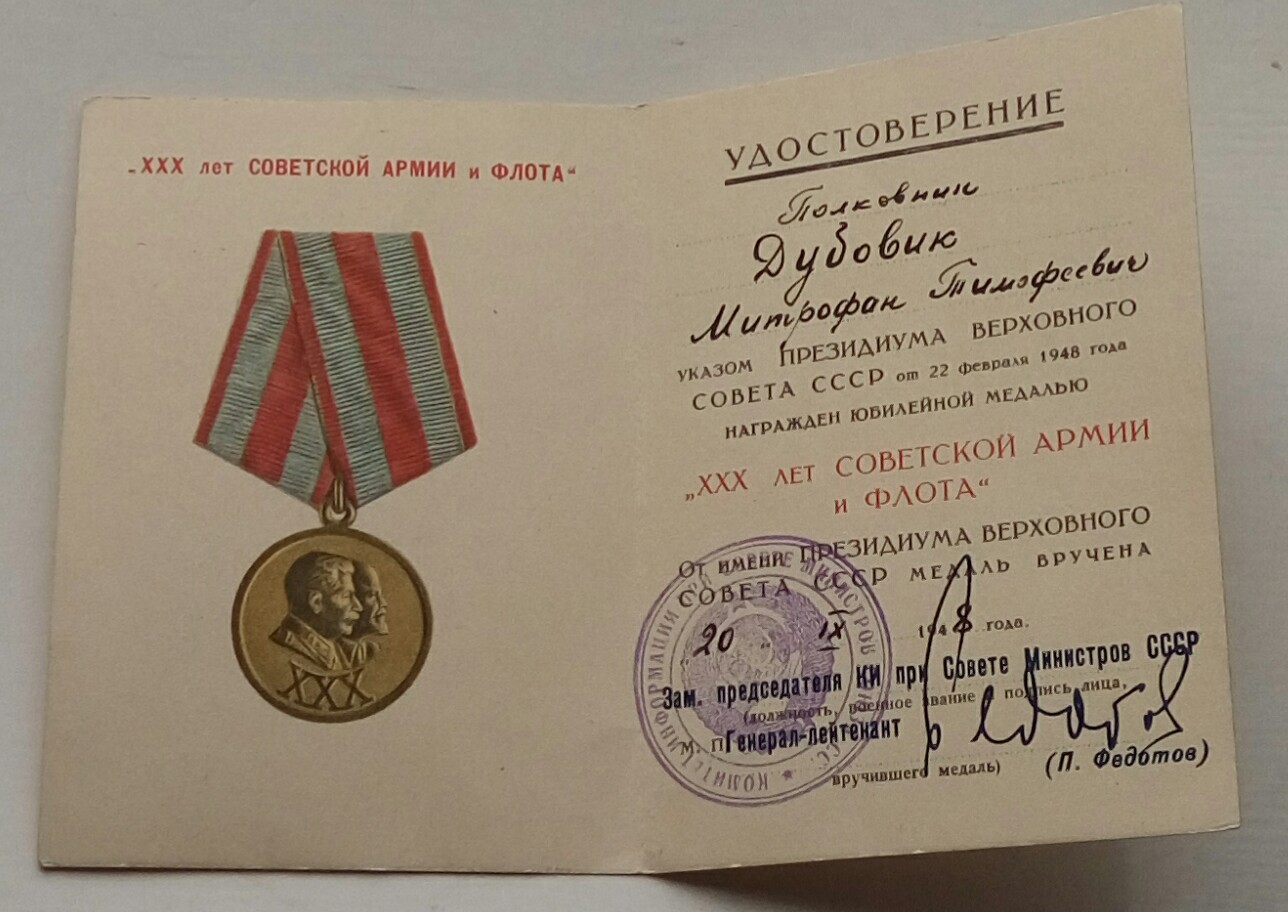 „XXX лет СОВЕТСКОЙ АРМИИ и ФЛОТА“
XXX
УДОСТОВЕРЕНИЕ
Полковник
Дубовик
Митрофан Тимофеевич
УКАЗОМ ПРЕЗИДИУМА ВЕРХОВНОГО
СОВЕТА СССР от 22 февраля 1948 года
НАГРАЖДЕН ЮБИЛЕЙНОЙ МЕДАЛЬЮ
„XXX ЛЕТ СОВЕТСКОЙ АРМИИ
и ФЛОТА“
От имени ПРЕЗИДИУМА ВЕРХОВНОГО
СОВЕТА СССР МЕДАЛЬ ВРУЧЕНА
„20“ IX 1948 года.
Зам. председателя КИ при Совете Министров СССР
(должность, военное звание и подпись лица,
М. П. Генерал-лейтенант
вручившего медаль) (П. Федотов)
КОМИТЕТ ИНФОРМАЦИИ ПРИ СОВЕТЕ МИНИСТРОВ СОЮЗА ССР